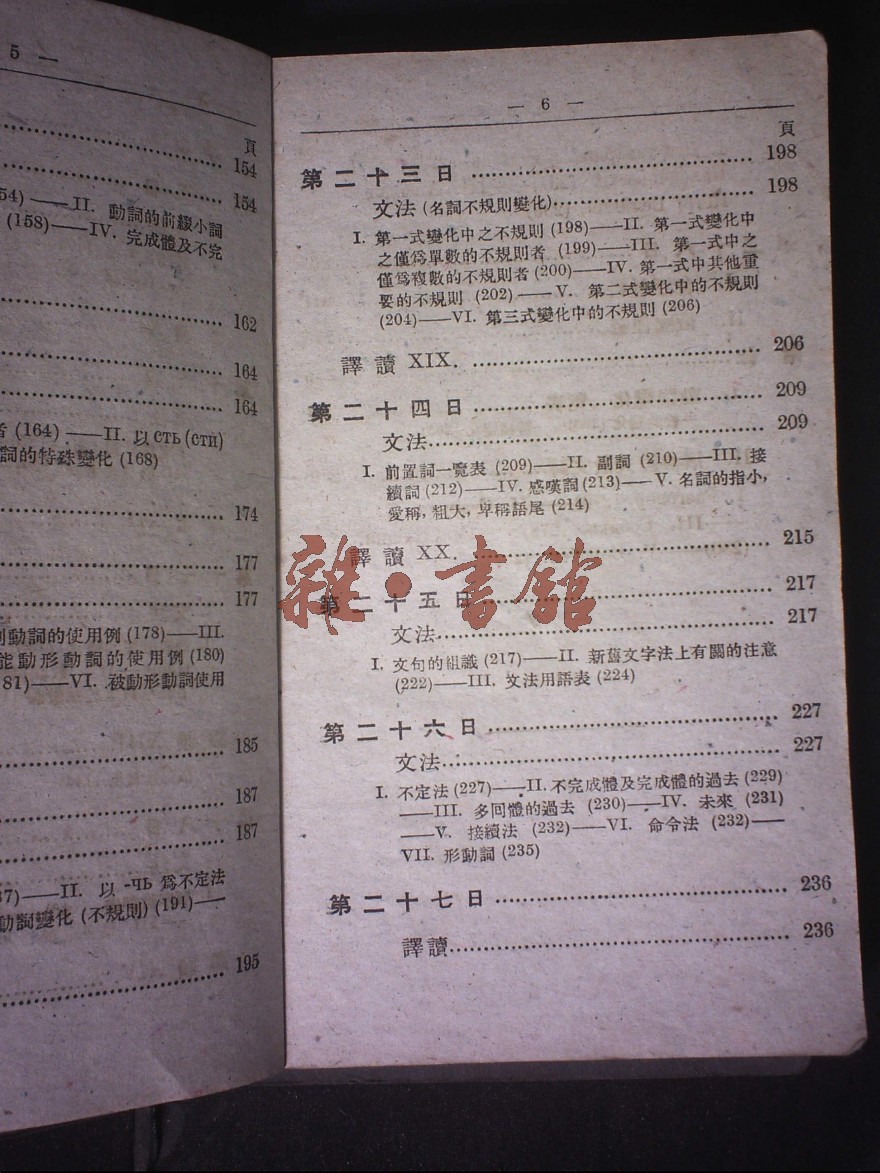 5 —
頁
154
154
54) ——II. 動詞的前綴小詞
(158)——IV. 完成體及不完
162
164
164
(164) ——II. 以 сть (сти)
詞的特殊變化 (168)
174
177
177
動詞的使用例 (178)——III.
能動形動詞的使用例 (180)
81)——VI. 被動形動詞使用
185
187
187
87)——II. 以 -чь 爲不定法
動詞變化 (不規則) (191)——
195
— 6 —
頁
第二十三日 198
文法 (名詞不規則變化) 198
I. 第一式變化中之不規則 (198)——II. 第一式變化中
之僅爲單數的不規則者 (199)——III. 第一式中之
僅爲複數的不規則者 (200)——IV. 第一式中其他重
要的不規則 (202) ——V. 第二式變化中的不規則
(204)——VI. 第三式變化中的不規則 (206)
譯讀 XIX. 206
第二十四日 209
文法 209
I. 前置詞一覽表 (209)——II. 副詞 (210)——III. 接
續詞 (212)——IV. 感嘆詞 (213)——V. 名詞的指小,
愛稱, 粗大, 卑稱語尾 (214)
譯讀 XX. 215
雜·書館
第二十五日 217
文法 217
I. 文句的組織 (217)——II. 新舊文字法上有關的注意
(222)——III. 文法用語表 (224)
第二十六日 227
文法 227
I. 不定法 (227)——II. 不完成體及完成體的過去 (229)
——III. 多回體的過去 (230)——IV. 未來 (231)
——V. 接續法 (232)——VI. 命令法 (232)——
VII. 形動詞 (235)
第二十七日 236
譯讀 236